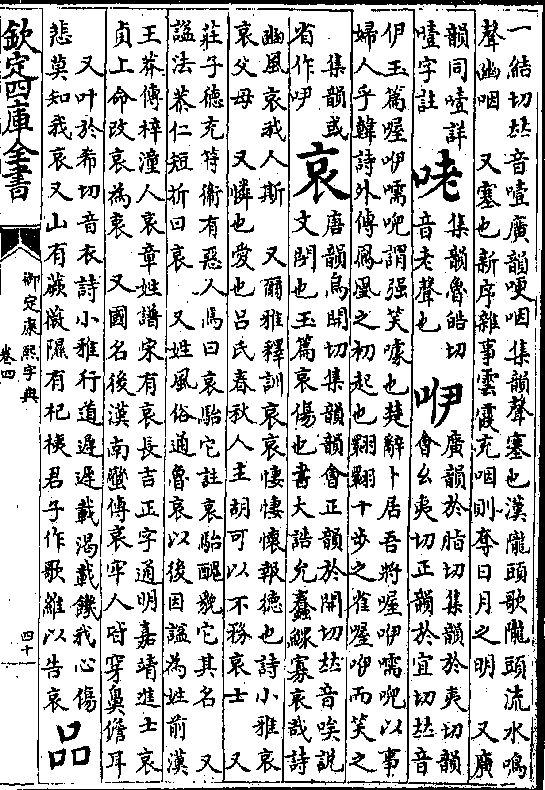 一結切𠀤音噎廣韻哽咽集韻聲塞也漢隴頭歌隴頭流水鳴
聲幽咽　又塞也新序雜事雲霞充咽則奪日月之明　又廣
韻同噎詳
噎字註
咾
集韻魯皓切
音老聲也
咿
廣韻於脂切集韻於夷切韻
會幺夷切正韻於宜切𠀤音
伊玉篇喔咿嚅唲謂强笑噱也楚辭卜居吾將喔咿嚅唲以事
婦人乎韓詩外傳鳳凰之初起也翾翾十步之雀喔咿而笑之
集韻或
省作吚
哀
唐韻烏開切集韻韻會正韻於開切𠀤音唉說
文閔也玉篇哀傷也書大誥允蠢鰥寡哀哉詩
豳風哀我人斯　又爾雅釋訓哀哀悽悽懷報德也詩小雅哀
哀父母　又憐也愛也呂氏春秋人主胡可以不務哀士　又
莊子德充符衞有惡人焉曰哀駘它註哀駘醜貌它其名　又
諡法恭仁短折曰哀　又姓風俗通魯哀以後因諡為姓前漢
王莽傳梓潼人哀章姓譜宋有哀長吉正字通明嘉靖進士哀
貞上命改哀為衷　又國名後漢南蠻傳哀牢人皆穿鼻儋耳
又叶於希切音衣詩小雅行道遲遲載渴載饑我心傷
悲莫知我哀又山有蕨薇隰有杞桋君子作歌維以告哀
品
欽定四庫全書
御定康熙字典
卷四
四十